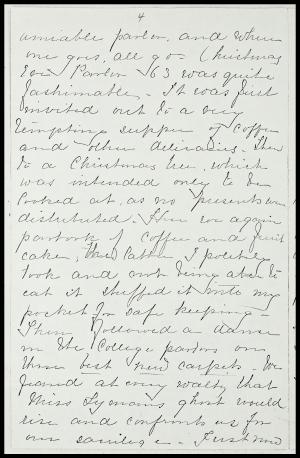 4
amiable parlor, and when
one goes, all go. Christmas
Eve Parlor 63 was quite
fashionable. It was first
invited out to a very
tempting supper of coffee
and other delicacies. Then
to a Christmas tree, which
was intended only to be
looked at, as no presents were
distributed. Here we again
partook of coffee and fruit
cake, the latter I politely
took and not being able to
eat it stuffed it into my
pocket for safe keeping.
Then followed a dance
in the College parlors on
those best new carpets. We
feared at every waltz that
Miss Lyman's ghost would
rise and confront us for
our sacrilege. Just now